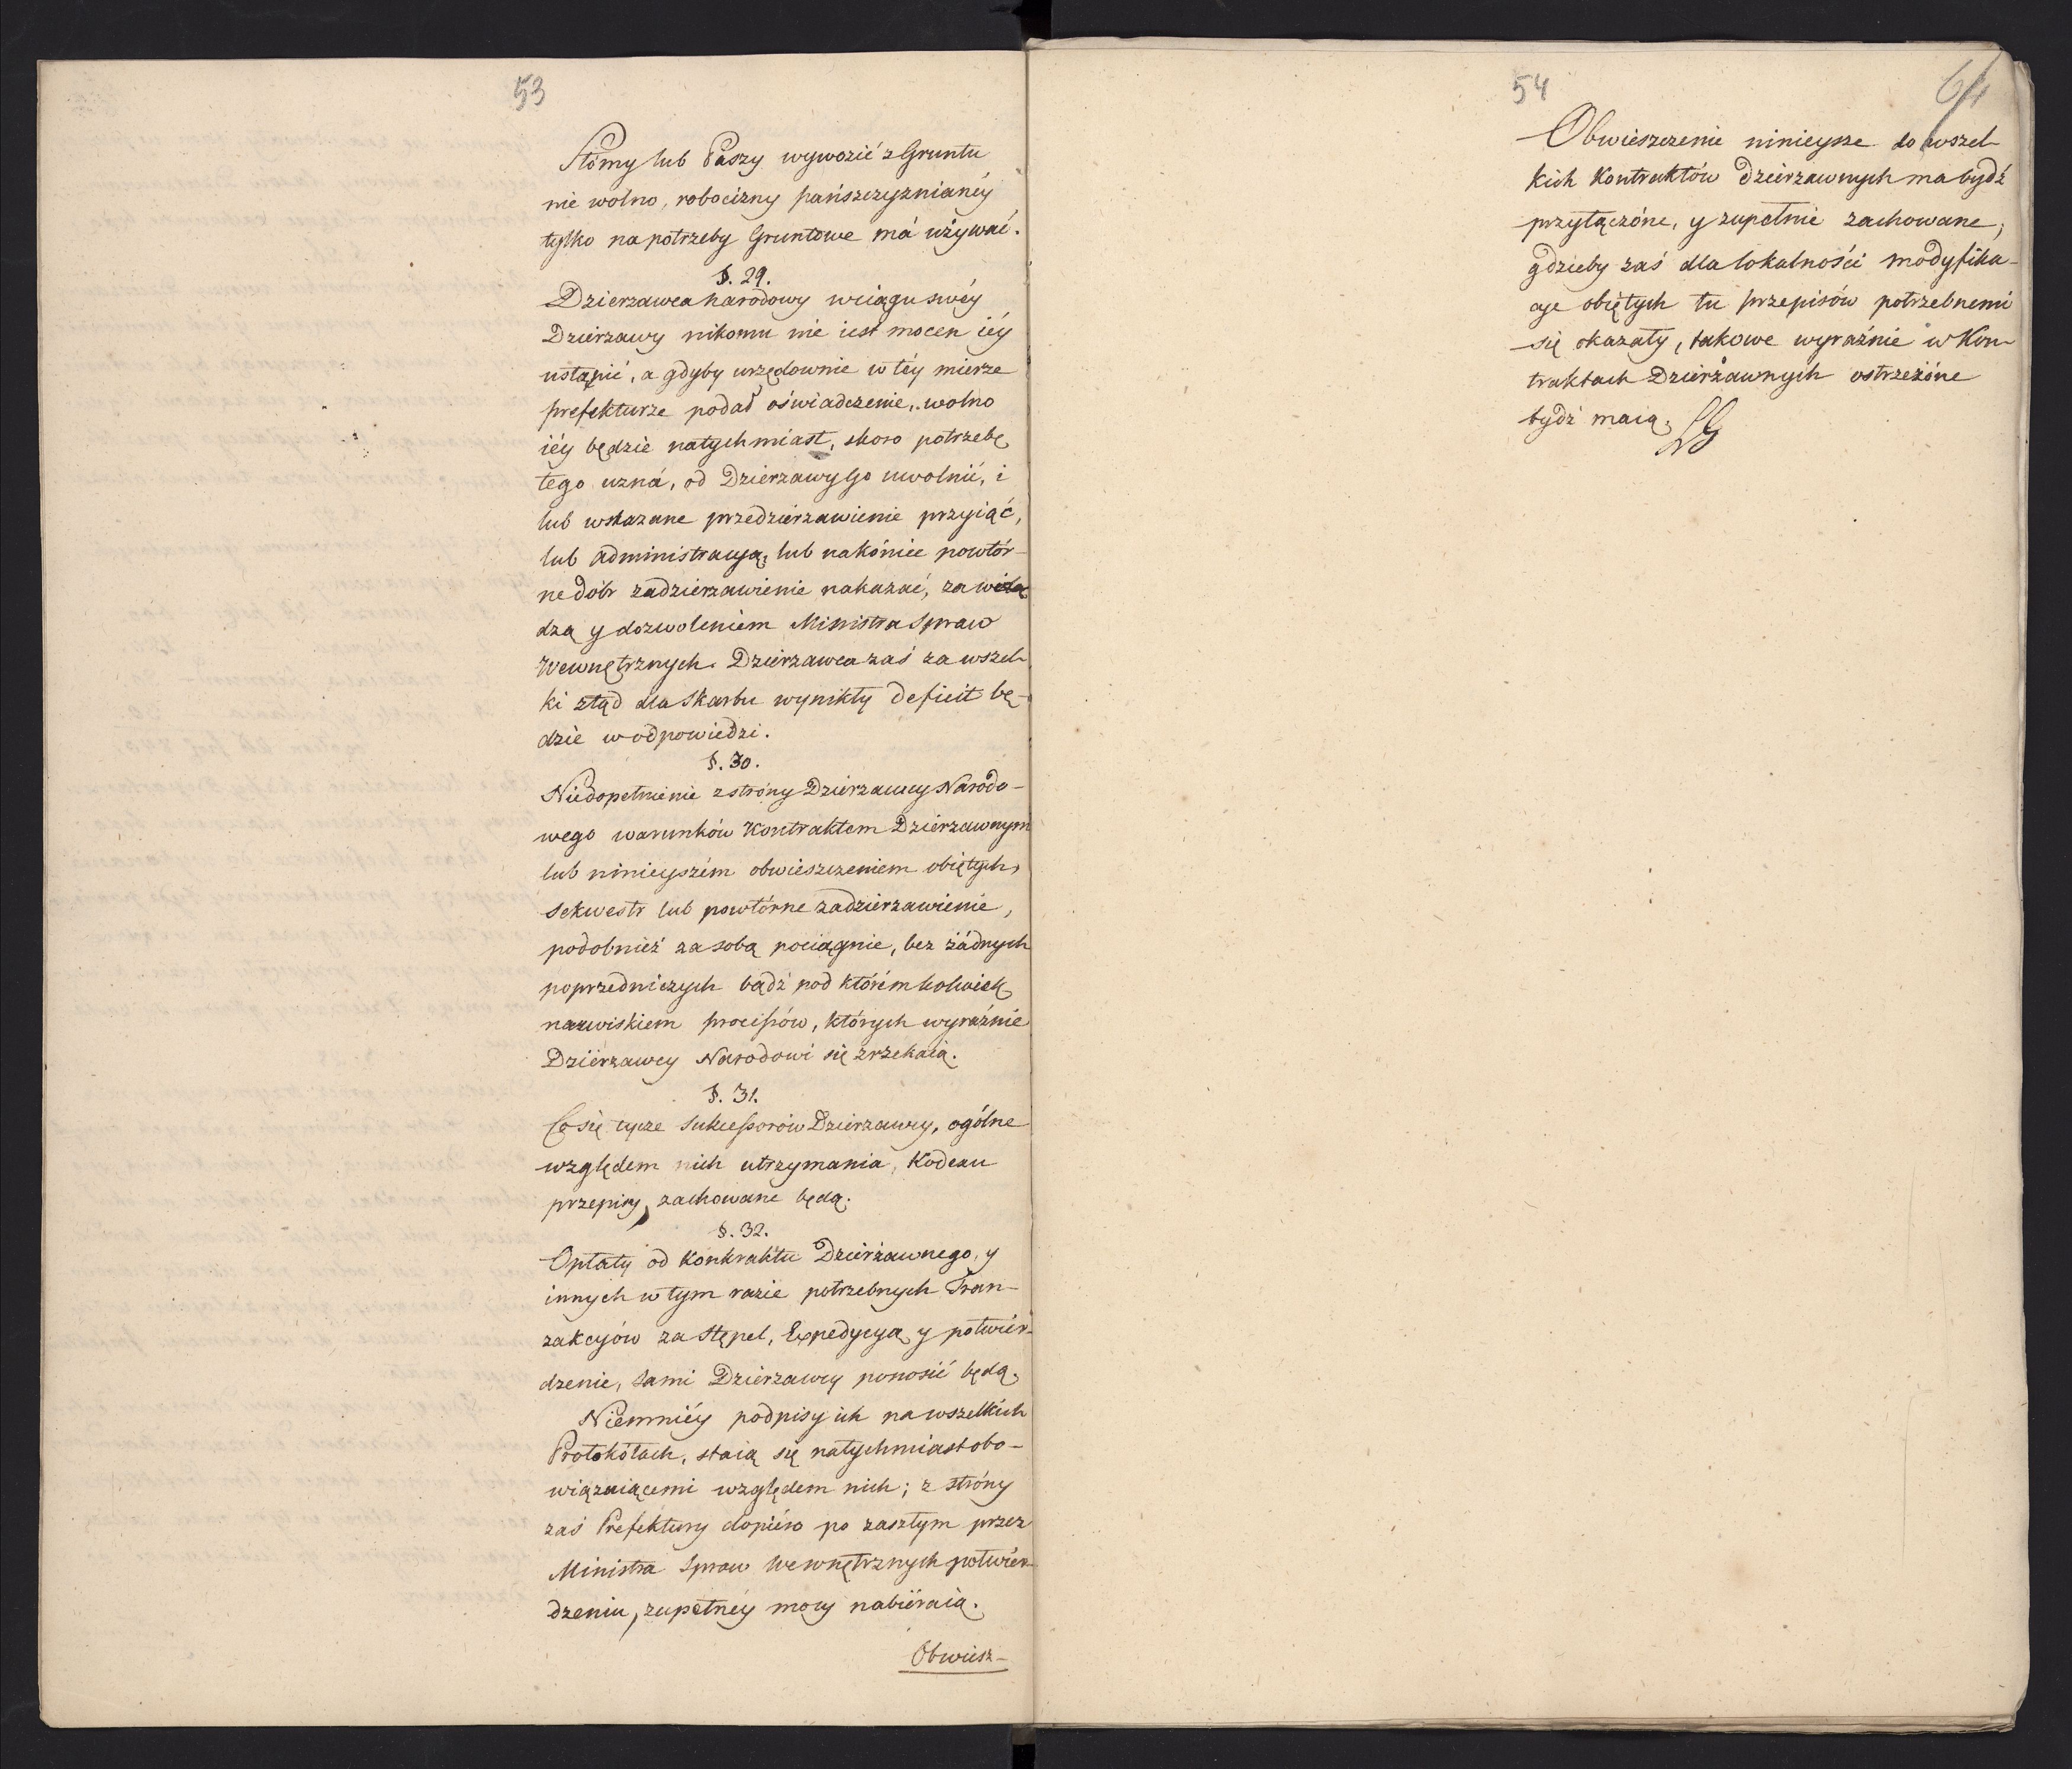 53
Słómy lub Paszy wywozić z Gruntu
nie wolno, robocizny pańszczyznianéy
tylko na potrzeby Gruntowe má używać.
§. 29.
Dzierzawca narodowy wciągu swéy
Dzierzawy nikomu nie iest mocen iéy
ustąpić, a gdyby urzędownie w téy mierze
prefekturze podał oświadczenie, wolno
iéy będzie natychmiast, skoro potrzebę
tego uzná, od Dzierzawy go uwolnić, i
lub wskazane przedzierzawienie przyiąć,
lub administracyą, lub nakóniec powtór-
ne dóbr zadzierzawienie nakazać, za wie
dzą y dozwoleniem Ministra Spraw
Wewnętrznych. Dzierzawca zaś za wszel-
ki ztąd dla Skarbu wynikły deficit bę-
dzie w odpowiedzi.
§. 30.
Niedopełnienie z stróny Dzierzawcy Narodo-
wego warunków Kontraktem Dzierzawnym
lub ninieyszém obwieszczeniem obiętych,
sekwestr lub powtórne zadzierzawienie,
podobnież za sobą pociągnie, bez żádnych
poprzedniczych bądź pod którémkolwiek
nazwiskiem processów, których wyraźnie
Dzierzawcy Narodowi się zrzekaią.
§. 31.
Co się tycze Sukcessorów Dzierzawcy, ogólne
względem nich utrzymania, Kodexu
przepisy zachowane będą.
§. 32.
Opłaty od Kontraktu Dzierżawnego, y
innych w tym razie potrzebnych Tran-
zakcyów za Stępel, Expedycyą y potwier-
dzenie, sami Dzierzawcy ponosić będą.
Niemniéy podpisy ich na wszelkich
Protokółach, staią się natychmiast obo-
wiązuiącemi względem nich; z stróny
zaś Prefektury dopiéro po zaszłym przez
Ministra Spraw Wewnętrznych potwier-
dzeniu, zupełnéy mocy nabiéraią.
Obwiesz-
54
64
Obwieszczenie ninieysze do wszel-
kich Kontraktów Dzierzawnych ma bydź
przyłączóne, y zupełnie zachowane,
gdzieby zaś dla lokalności modyfika-
cye obiętych tu przepisów potrzebnemi
się okazały, takowe wyraźnie w Kon-
traktach Dzierżawnych ostrzeżóne
bydź maią.